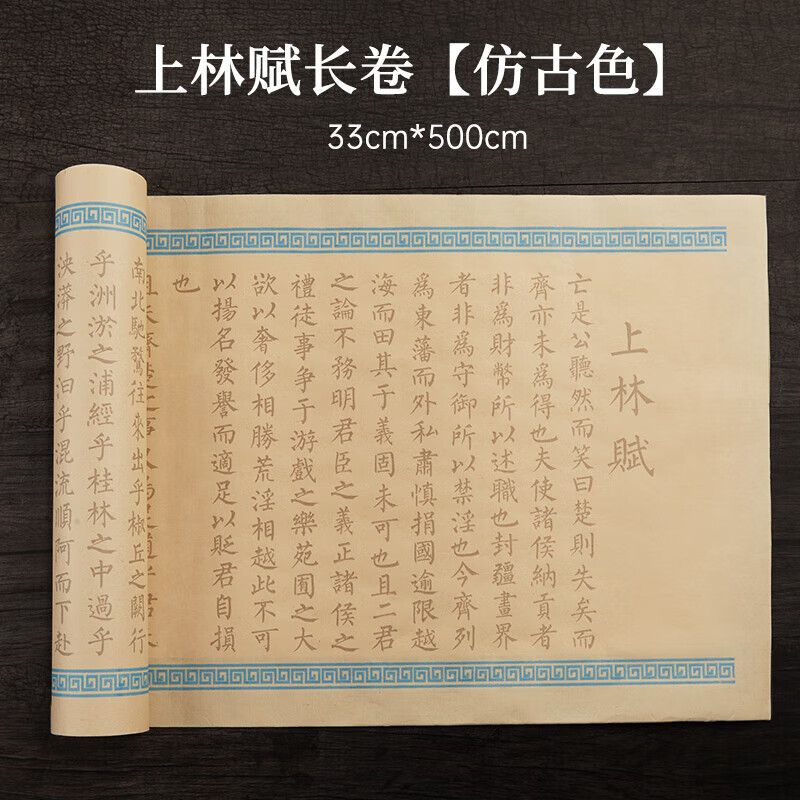 上林赋长卷【仿古色】
33cm*500cm
上林賦
亡是公聽然而笑曰楚則失矣而
齊亦未為得也夫使諸侯納貢者
非為財幣所以述職也封疆畫界
者非為守御所以禁淫也今齊列
為東藩而外私肅慎捐國逾限越
海而田其于義固未可也且二君
之論不務明君臣之義正諸侯之
禮徒事争于游戲之樂苑囿之大
欲以奢侈相勝荒淫相越此不可
以揚名發譽而適足以貶君自損
也
南北馳騖往來出乎椒丘之闕行
乎洲淤之浦經乎桂林之中過乎
泱漭之野汩乎混流順阿而下赴